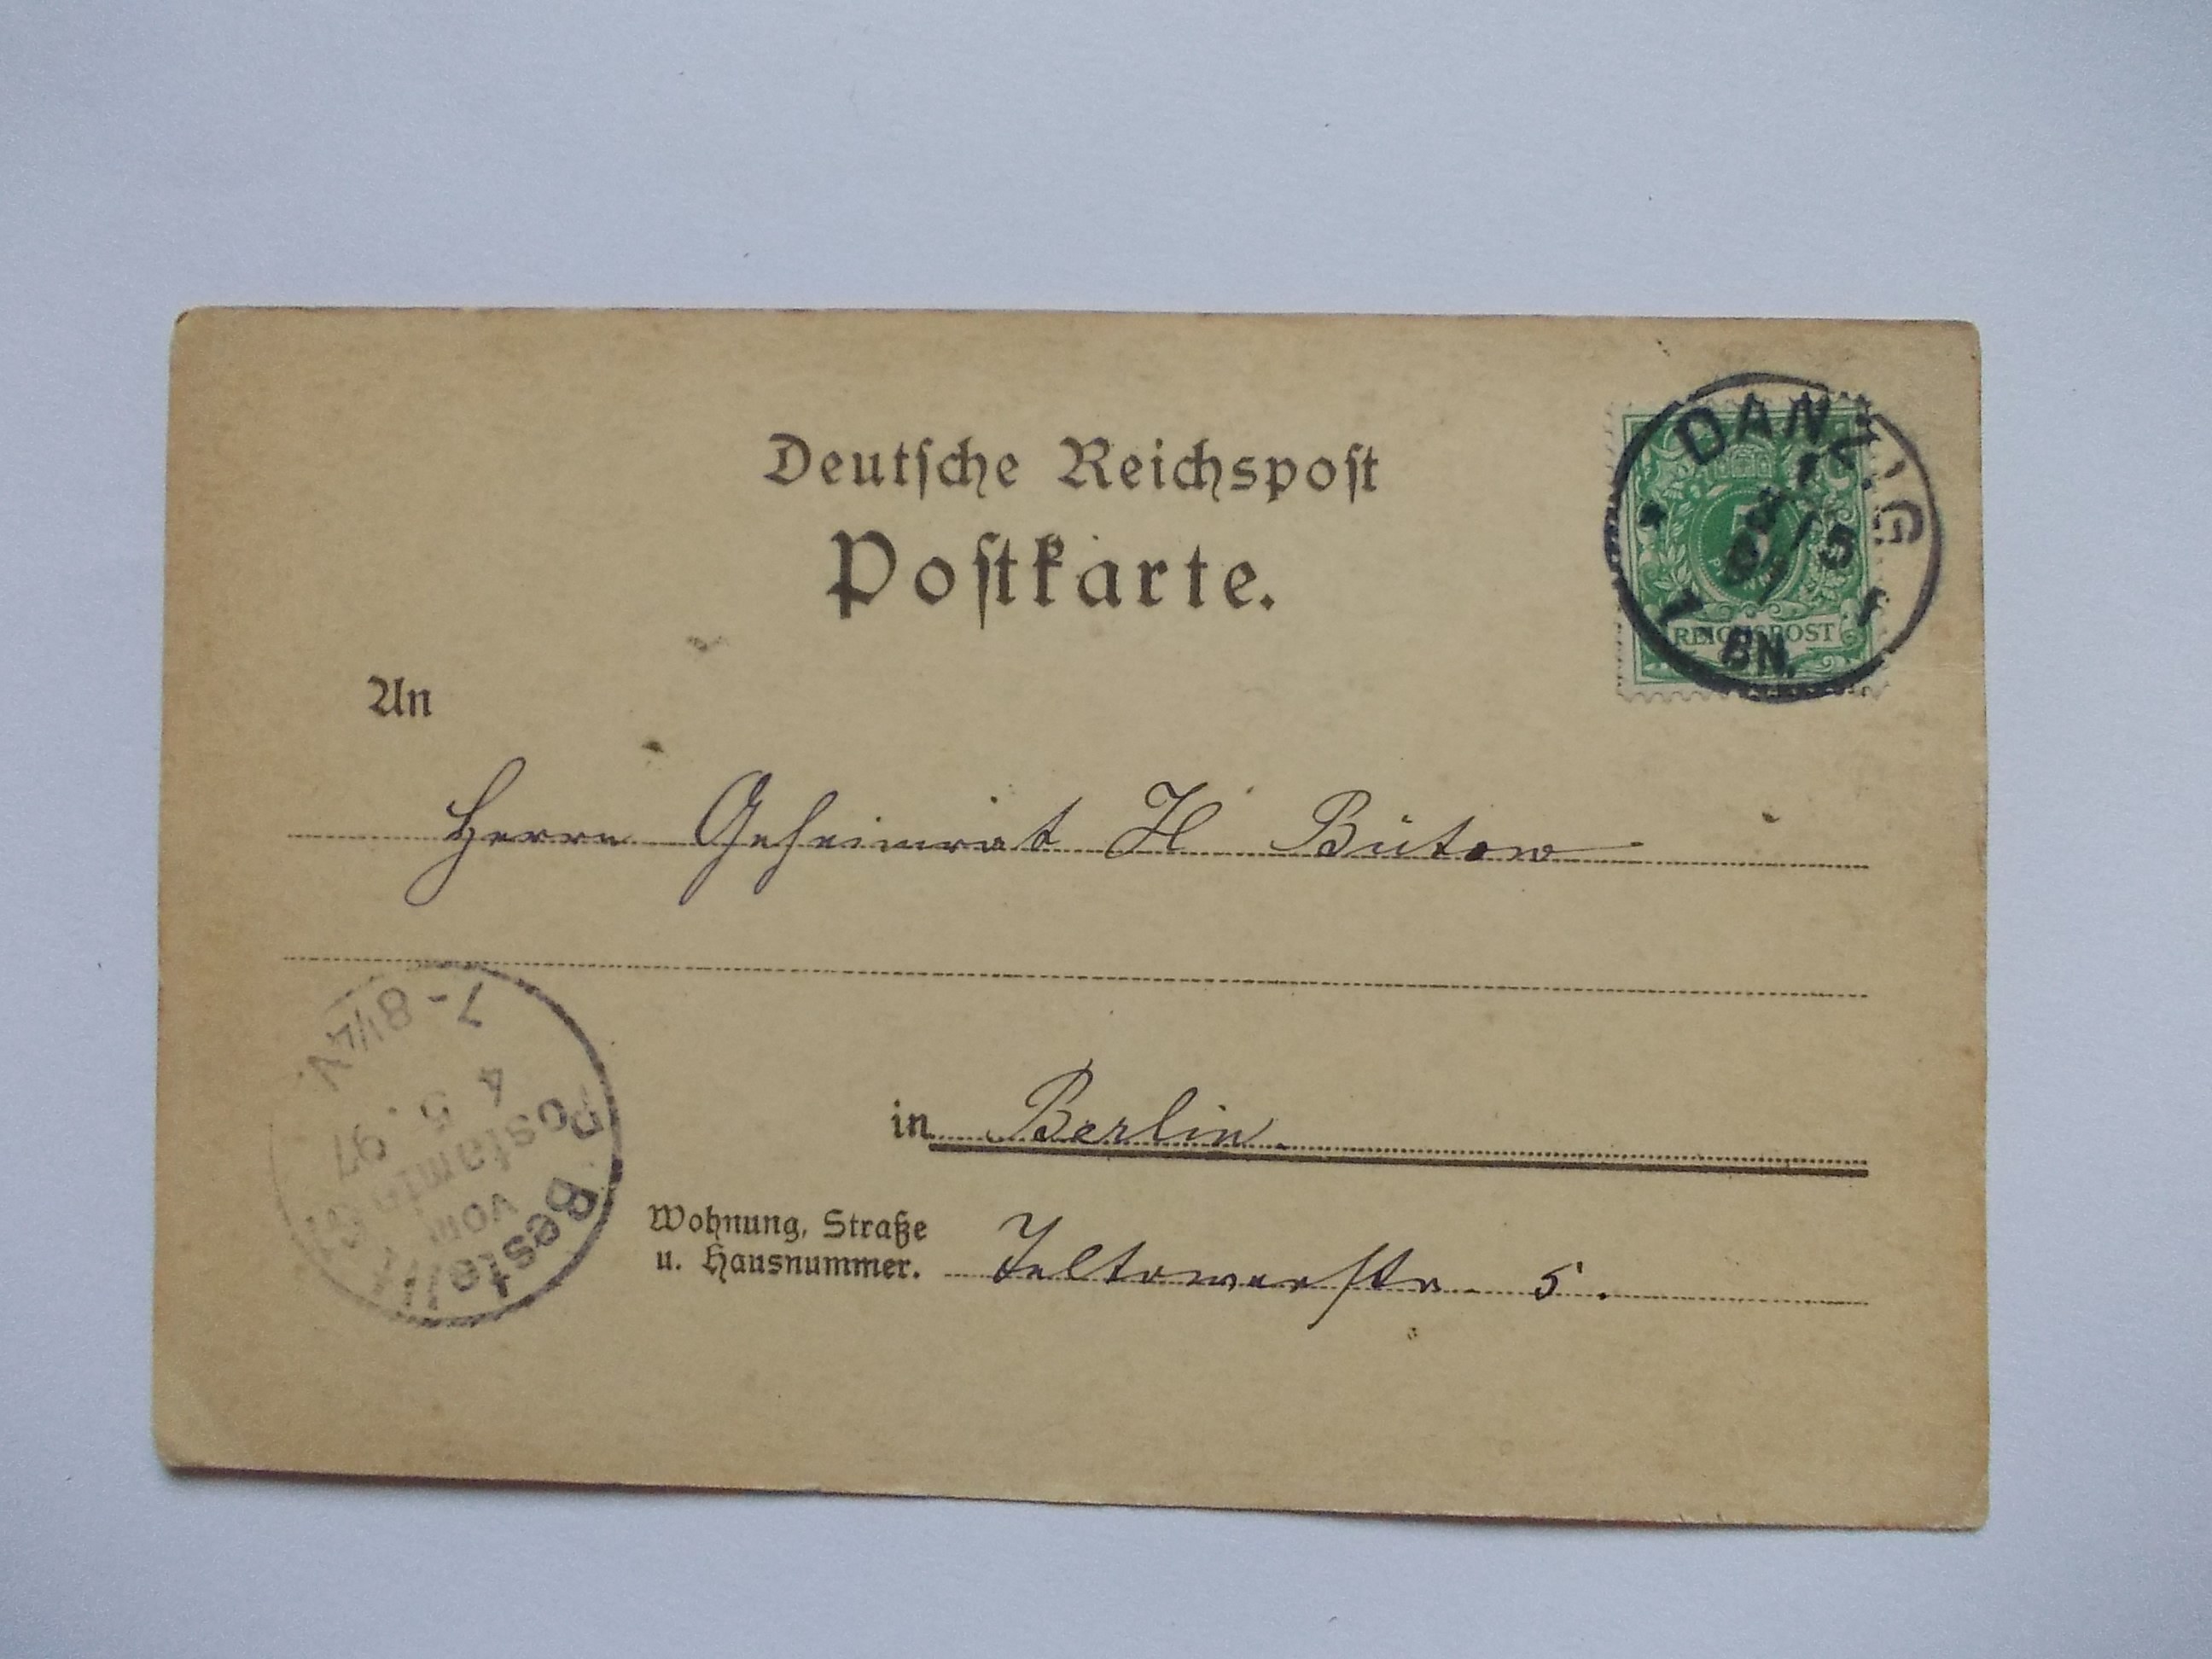 Deutsche Reichspost
Postkarte.
DANZIG
1
3/5
97
7-8
BN.
REICHSPOST
An
Herrn Geheimrat H Bütow
in Berlin.
Wohnung, Straße
u. Hausnummer.
Teltowerstr. 5.
Bestellt
vom
Postamte
4. 5. 97
7-8¼V.